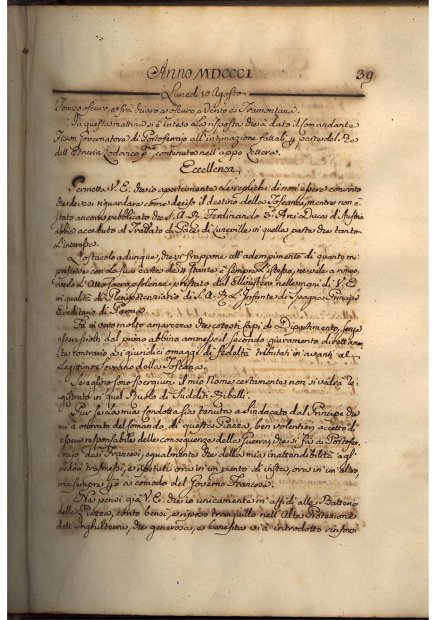 Anno MDCCCI
39
Lunedì 10 Agosto
Tempo oscuro, e Vento a Tramontana.
In questa mattina si è intesa la risposta che ha dato il Comandante
Fixon Governatore di Portoferajo all'intimazione fattali p parte del Re
d'Etruria Lodovico P.mo contenuta nell'appo Lettera.
Eccellenza
Permetta V. E. che io apertamente Le replichi di non essere convinto
che devasi riguardare come deciso il destino della Toscana, mentre non è
stato ancora pubblicato che S. A. R. Ferdinando 3.º Arci Duca d'Austria
abbia acceduto al Trattato di Pace di Luneville in quella parte che tanto
L'interessa.
L'ostacolo adunque, che si frappone all'adempimento di quanto mi
prescrive con la sua carta de è sempre l'istesso, ne vale a rimuo=
verlo l'Atto solenne prestato dal Ministero nelle mani di V. E.
in qualità di Plenipotenziario di S. A. R. L'Infante di Spagna Principe
Ereditario di Parma.
Fa in vero molto amarezza che cotesti Capi di Dipartimento, senza
essere sciolti dal primo abbino ammesso il secondo giuramento direttamen=
te contrario a i giudici omaggi di fedeltà tributati in avanti al
Legittimo Sovrano della Toscana.
Se eglino sono spergiuri, il mio Nome certamente non si vedrà re=
gistrato in quel Ruolo di Sudditi Ribelli.
Pur se la mia condotta sia tenuta a Sindacato dal Principe che
mi à onorato del comando di questa Piazza, ben volentieri accetto d'
essere responsabile delle conseguenze della Guerra, che si fa a Portofe=
rajo da' Francesi, egualmente che della mia inattendibilità agl'
ordini trasmessi, e ripetuti ora in un punto di vista, ora in un'altro
ma sempre p a comodo del Governo Francese.
Ne pensi già V. E. che io unicamente m'affidi alle Batterie
della Piazza, conto bensì, e riposo tranquillo nell'Alta Protezione
dell'Inghilterra, che generosa, e benefica vi à introdotto rinfor=